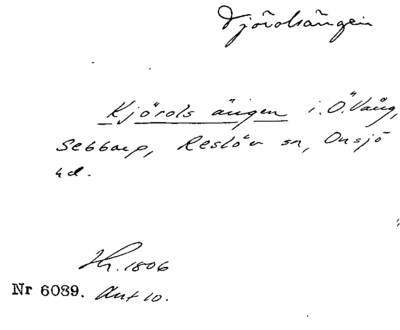 Djörolsängen
Kjörols ängen i. Ö. Vång,
Sebbarp, Reslöv sn, Onsjö
hd.
Hr. 1806
Nr 6089. Akt 10.